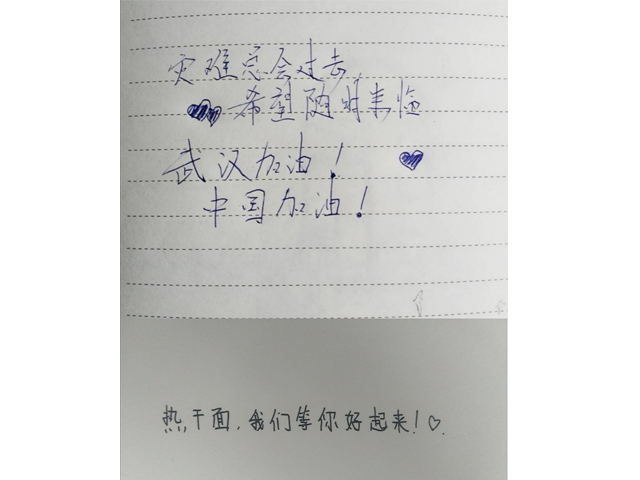 灾难总会过去,
希望随时来临
武汉加油!
中国加油!
热干面,我们等你好起来!♡.